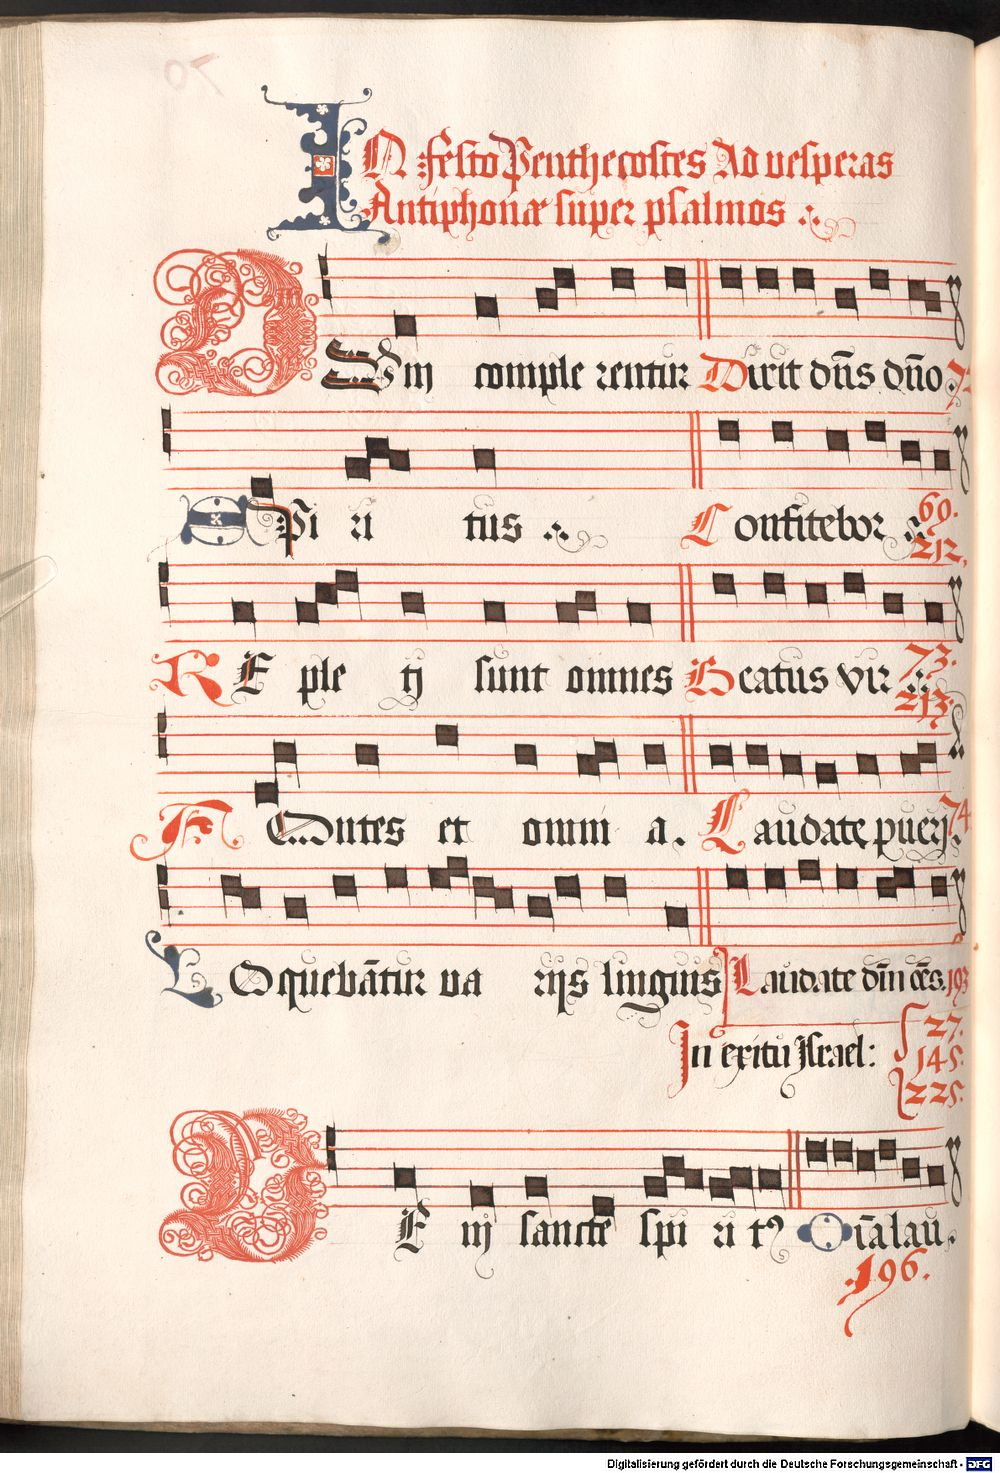 IN Festo Penthecostes Ad vesperas
Antiphonæ super psalmos
DUm comple rentur Dixit dns dno 72
SPi ri tus Confitebor 69. 212.
RE ple tj sunt omnes Beatus vir 73. 213.
FOntes et omni a. Laudate puerj 74
LOquebantur va rijs linguis Laudate dm oes. 193
In exitu Israel: 27. 145. 225.
VE nj sancte spi ri t9 Oia lau
196.
Digitalisierung gefördert durch die Deutsche Forschungsgemeinschaft - DFG